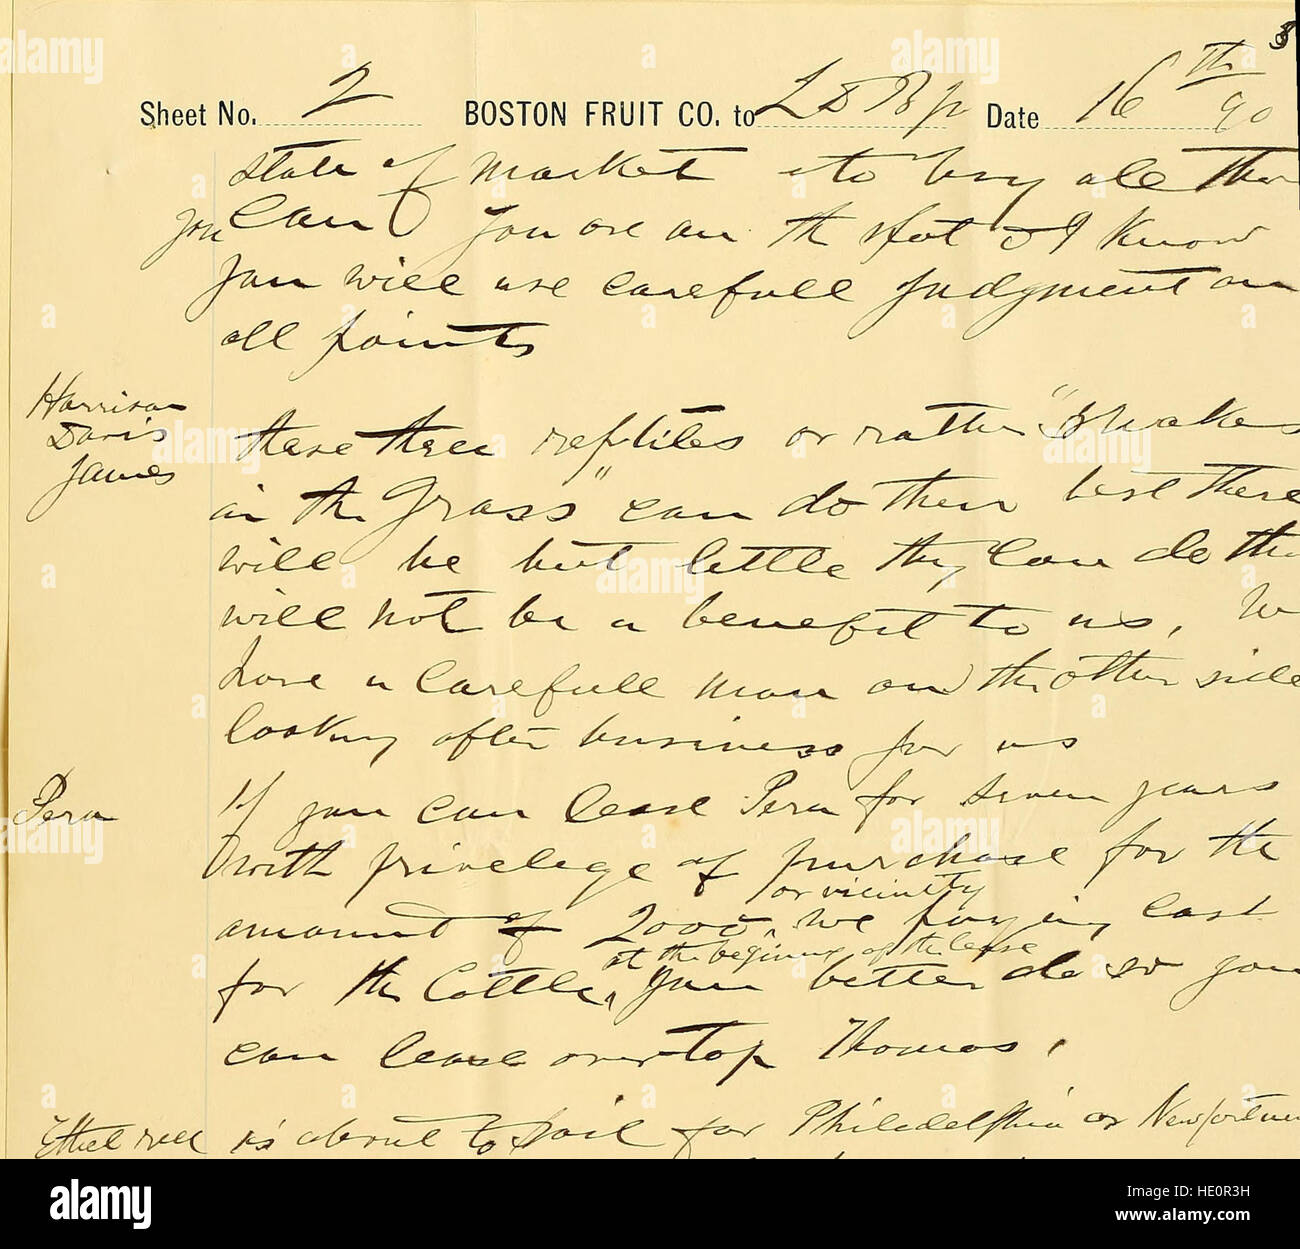 8
Sheet No. 2 BOSTON FRUIT CO. to L D B jr Date 16th 90
state of market & to buy all that
you can You are on the spot & I know
you will use carefull judgment on
all points
Harrison
Davis
James
these three reptiles or rather "Snakes
in the Grass" can do their best there
will be but little they can do tha
will not be a benefit to us, W
have a carefull man on the other side
looking after business for us
Peru
If you can lease Peru for seven years
with privelege of purchase for the
or vicinity
amount of 2000, we paying cash
at the begining of the lease
for the Cattle, You better do so you
can lease over top Thomas.
Ethelred is about to sail for Philadelphia or Newport
alamy
alamy
Image ID: HE0R3H
www.alamy.com